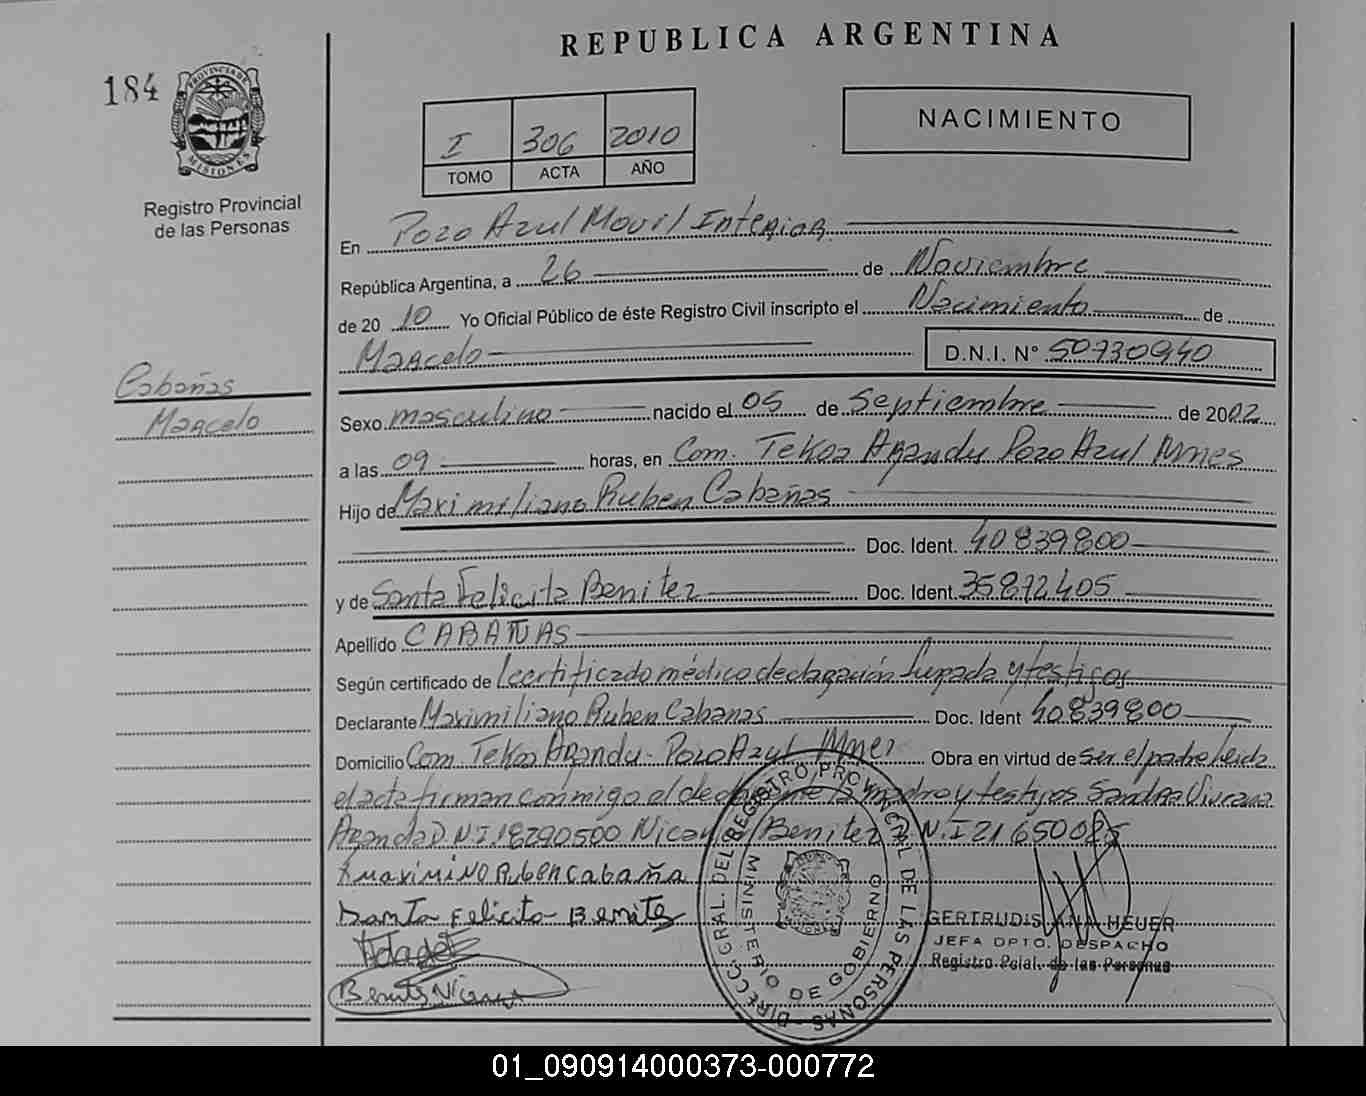 REPUBLICA ARGENTINA
184
PROVINCIA DE MISIONES
Registro Provincial
de las Personas
I 306 2010
TOMO ACTA AÑO
NACIMIENTO
En Pozo Azul Movil Interior
República Argentina, a 26 de Noviembre
de 2010 Yo Oficial Público de éste Registro Civil inscripto el Nacimiento de
Marcelo D.N.I. Nº 50730940
Cabañas
Marcelo
Sexo masculino nacido el 05 de Septiembre de 2002
a las 09 horas, en Com. Tekoa Arandu Pozo Azul Mnes
Hijo de Maximiliano Ruben Cabañas
Doc. Ident. 40839800
y de Santa Felicita Benitez Doc. Ident. 35872405
Apellido CABAÑAS
Según certificado de certificado médico declaración Jurada y testigos
Declarante Maximiliano Ruben Cabanas Doc. Ident 40839800
Domicilio Com Tekoa Arandu - Pozo Azul Mnes Obra en virtud de ser el padre leida
el acta firman conmigo el declarante la madre y testigos Sandra Viviana
Aranda D.N.I 18290500 Benitez D.N.I 21650085
Ruben Cabaña
Santa Felicita Benitez
Benitez
DIRECC. GRAL. DEL REGISTRO PROVINCIAL DE LAS PERSONAS
MINISTERIO DE GOBIERNO
GERTRUDIS ANA HEUER
JEFA DPTO. DESPACHO
Registro Pcial. de las Personas
01_090914000373-000772